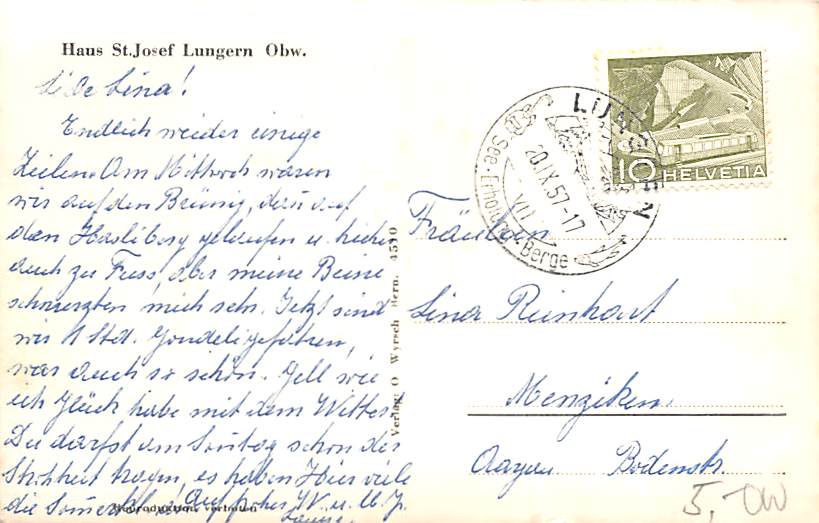 Haus St.Josef Lungern Obw.
L. Lina!
Endlich wieder einige
Zeilen. Am Mittwoch waren
wir auf den Brünig, dan auf
den Hasliberg gelaufen u. hieher
auch zu Fuss, aber meine Beine
schmerzten mich sehr. Jetzt sind
wir 1 Std. Gondeligefahren,
was auch so schön. Gell wie
ich Glück habe mit dem Wetter.
Du darfst am Sontag schon der
Strohhut tragen, es haben Hier viele
die Auf frohes W.
Reproduktion verboten
Verlag O. Wyrsch Bern. 4510
LUNGERN
20.IX.57-17
VII
See Erholung Berge
10
HELVETIA
Fräulein
Lina Reinhart
Menziken
Aargau Bodenstr.
5.-